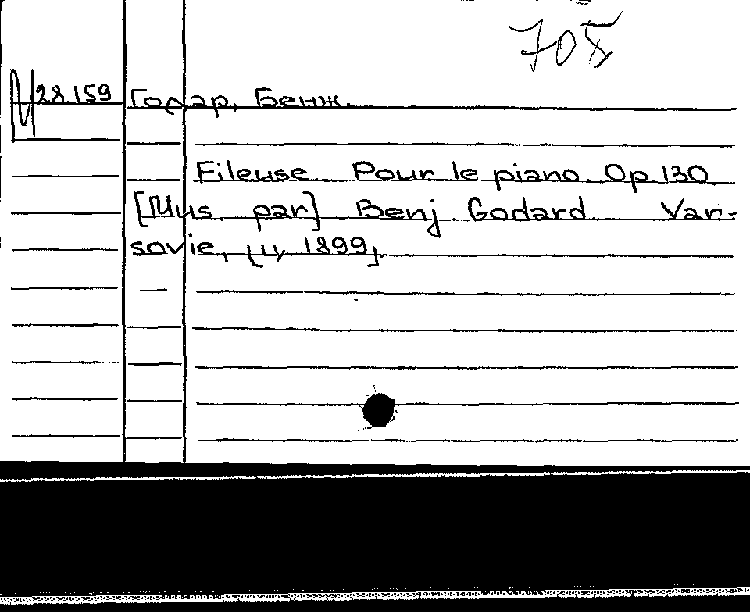 708
М 28.159 Годар, Бенж.
Fileuse Pour le piano Op 130
[Mus par] Benj Godard Var-
sovie, [ц 1899].